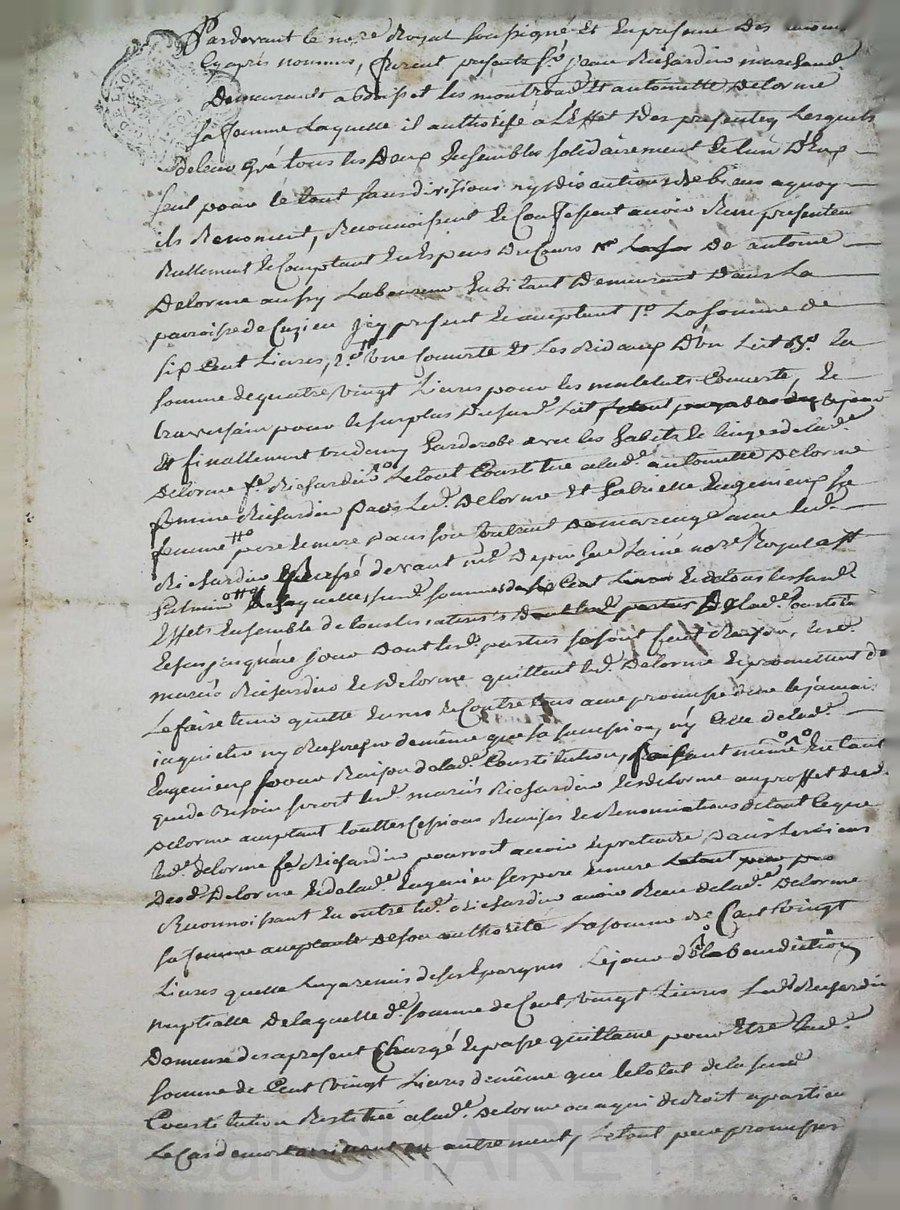 Pardevant le no.re Royal soussigné et en presence des temoins
cyapres nommes, furent presents sr. jean Richardin marchand
demeurant a boisset les montrond et antoinette Delorme
sa femme laquelle il authorise a l'effet des presentes lesquels
de leur gré tous les deux ensembles solidairement et l'un d'eux
seul pour le tout sans divisions ny discutions de biens aquoy
ils Renoncent, Reconnoissent et Confessent avoir Reçu presentement
Reellement et Comptant en Especes du Cours de antoine
Delorme aussy Laboureur habitant demeurant dans La
paroisse de Cuzieu jcy present et acceptant 1o. La somme de
six Cent Livres, 2o. une couverte et les Rideaux d'un Lit 3o. La
somme de quatre vingt Livres pour les matelats Couverte, et
traversain pour le surplus dususd. Lit
Et finallement un garderobe avec les habits et linges de lad.e
Delorme fe. Richardin Le tout Constitué a lad.e antoinette Delorme
femme Richardin par led. Delorme et Gabrielle Eugenieux sa
femme pere et mere dans son Contrat de mariage avec led.
Richardin passé devant me. no.re Royal a st
Galmier De laquelle susd. somme de six Cent Livres et de tous lesusd.
Effets Ensemble de tous les interests
et jusqu'à ce jour dont led. parties se sont fait Raison, lesd.
mariés Richardin et Delorme quittent led. Delorme et promettent de
Le faire tenir quitte envers et Contre tous avec promesse de ne le jamais
inquieter ny Rechercher de même que sa succession, ny celle de lad.e
Eugenieux pour Raison de lad.e Constitution, faisant même en tant
que de besoin seroit led. mariés Richardin et Delorme au proffit dud.
Delorme acceptant touttes Cessions Remises et Renonciations de tout ce que
lad.e Delorme fe. Richardin pourroit avoir a pretendre dans les biens
Desd. Delorme et de lad.e Eugenieux ses pere et mere
Reconnoissant en outre led. Richardin avoir Reçu de lad.e Delorme
sa femme acceptante de son authorité La somme de Cent vingt
Livres quelle luy a remis de ses Epargnes Le jour de la benediction
nuptialle de laquelle d.e somme de Cent vingt Livres Led. Richardin
Demeure des a present Chargé et passe quittance pour Etre lad.e
somme de Cent vingt Livres de même que le total de la susd.e
Constitution Restitué a lad.e Delorme ou a qui de droit apartien
Le Cas de mort arrivant ou autrement, Le tout pour promesses